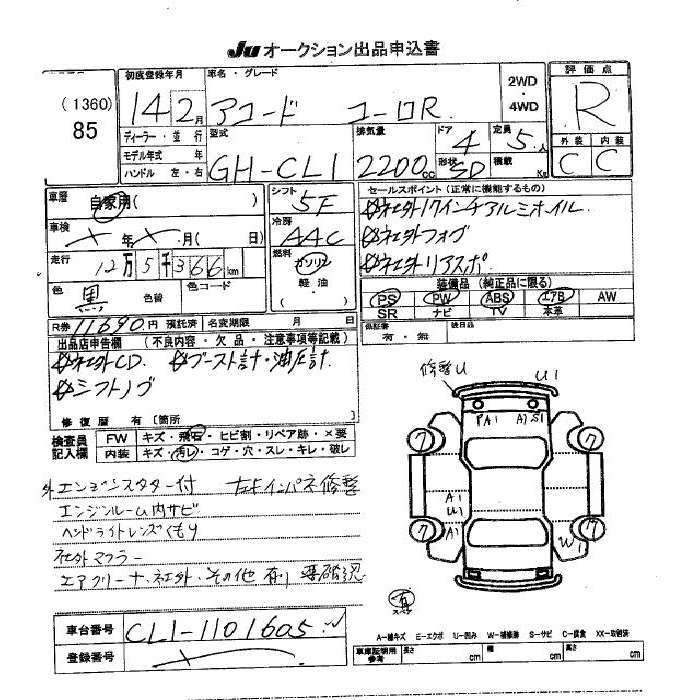 JU オークション出品申込書
(1360)
85
初度登録年月
14 2月
車名・グレード
アコード ユーロR
2WD
・
4WD
評価点
R
外装 内装
C C
ディーラー・並行
モデル年式 年
ハンドル 左・右
型式
GH-CL1
排気量
2200cc
ドア
4
形状
SD
定員
5人
積載
Kg
車歴
自家用( )
車検
× 年 × 月( 日)
走行
12万5千366km
色
黒
色替
色コード
シフト
5F
冷房
AAC
燃料
ガソリン
軽油
・
セールスポイント(正常に機能するもの)
社外17インチアルミホイル
社外フォグ
社外リアスポ
装備品(純正品に限る)
PS PW ABS エアB AW
SR ナビ TV 本革
R券 11690円 預託済 名変期限 月 日
保証書
有・無
後日品
出品店申告欄 (不良内容・欠品・注意事項等記載)
社外CD ブースト計・油圧計
シフトノブ
修復歴 有〔箇所 〕
検査員
記入欄
FW キズ・飛石・ヒビ割・リペア跡・×要
内装 キズ・汚レ・コゲ・穴・スレ・キレ・破レ
外エンジンスター付
インパネ修整
エンジンルーム内サビ
ヘッドライトレンズくもり
社外マフラー
エアクリーナ、社外、その他有り 要確認
修整U U1
A1 A1 S1
7 7
A1
U1
7 7
A1 W1
A-線キズ E-エクボ U-凹み W-補修跡 S-サビ C-腐食 XX-取替済
車台番号
CL1-1101605
登録番号
車庫証明用
参考
長さ cm 幅 cm 高さ cm